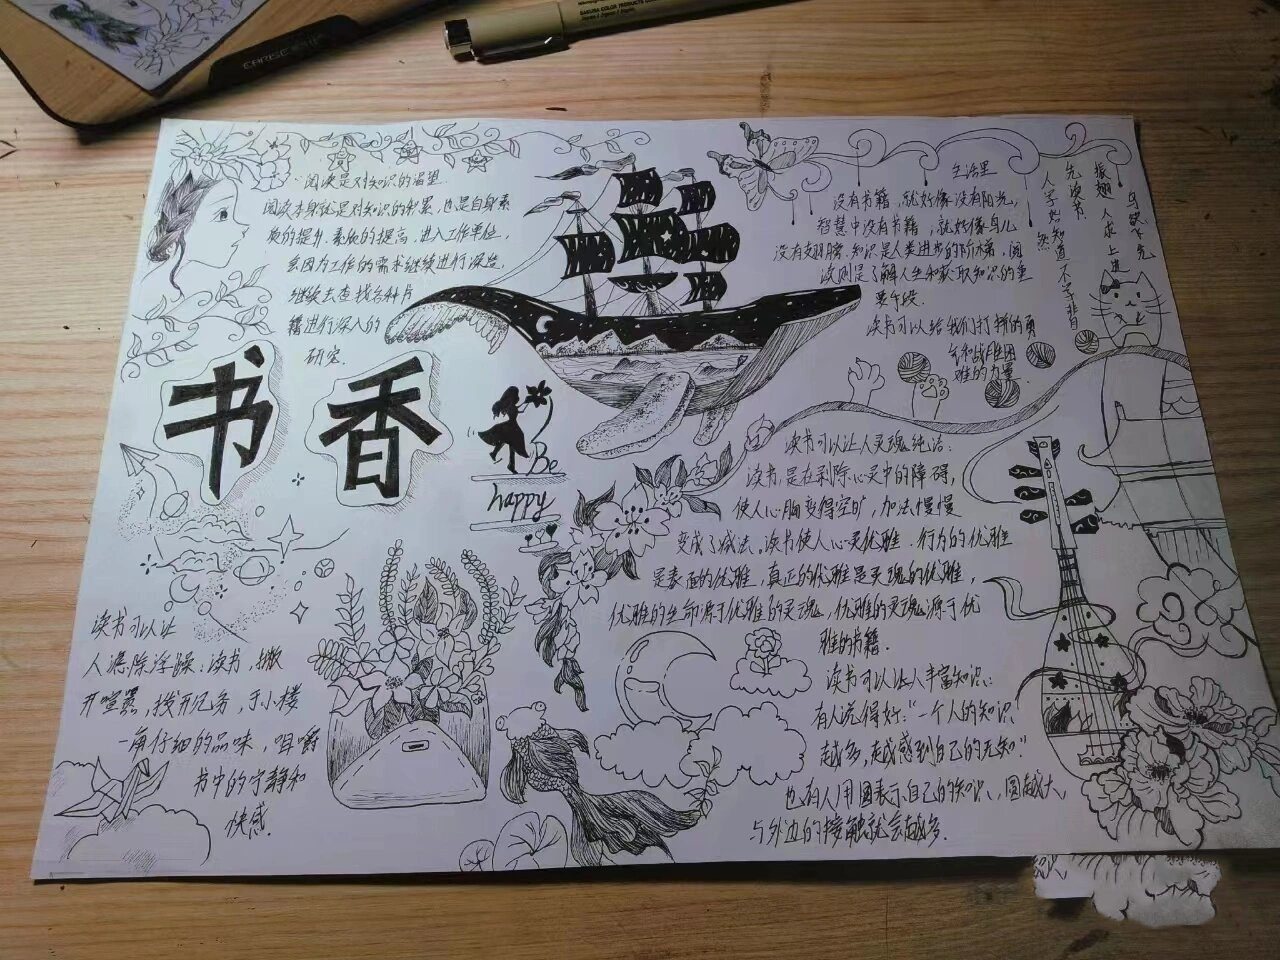 EARISE
SAKURA COLOR PRODUCTS
阅读是对知识的渴望.
阅读本身就是对知识的积累,也是自身素
质的提升,素质的提高,进入工作单位,
会因为工作的需求继续进行深造.
继续去查找各种片
籍进行深入的
研究.
书香
Be
happy
读书可以让
人涤除浮躁:读书,撇
开喧嚣,找开亿务,于小楼
一角仔细的品味,咀嚼
书中的宁静和
快感.
生活里
没有书籍,就好像没有阳光,
智慧中没有书籍,就好像鸟儿
没有翅膀.知识是人类进步的阶梯,阅
读则是了解人生和获取知识的重
要手段.
读书可以给我们打拼的勇
气和战胜困
难的力量.
鸟欲飞先
振翅人求上进
先读书
人学始知道不学非自
然
读书可以让人灵魂纯洁:
读书,是在剥除心灵中的障碍,
使人心胸变得空旷,加法慢慢
变成了减法,读书使人心灵优雅.行为的优雅
是表面的优雅,真正的优雅是灵魂的优雅,
优雅的生命源于优雅的灵魂,优雅的灵魂源于优
雅的书籍.
读书可以让人丰富知识:
有人说得好:“一个人的知识
越多,越感到自己的无知”
也有人用圆表示自己的知识,圆越大,
与外边的接触就会越多.